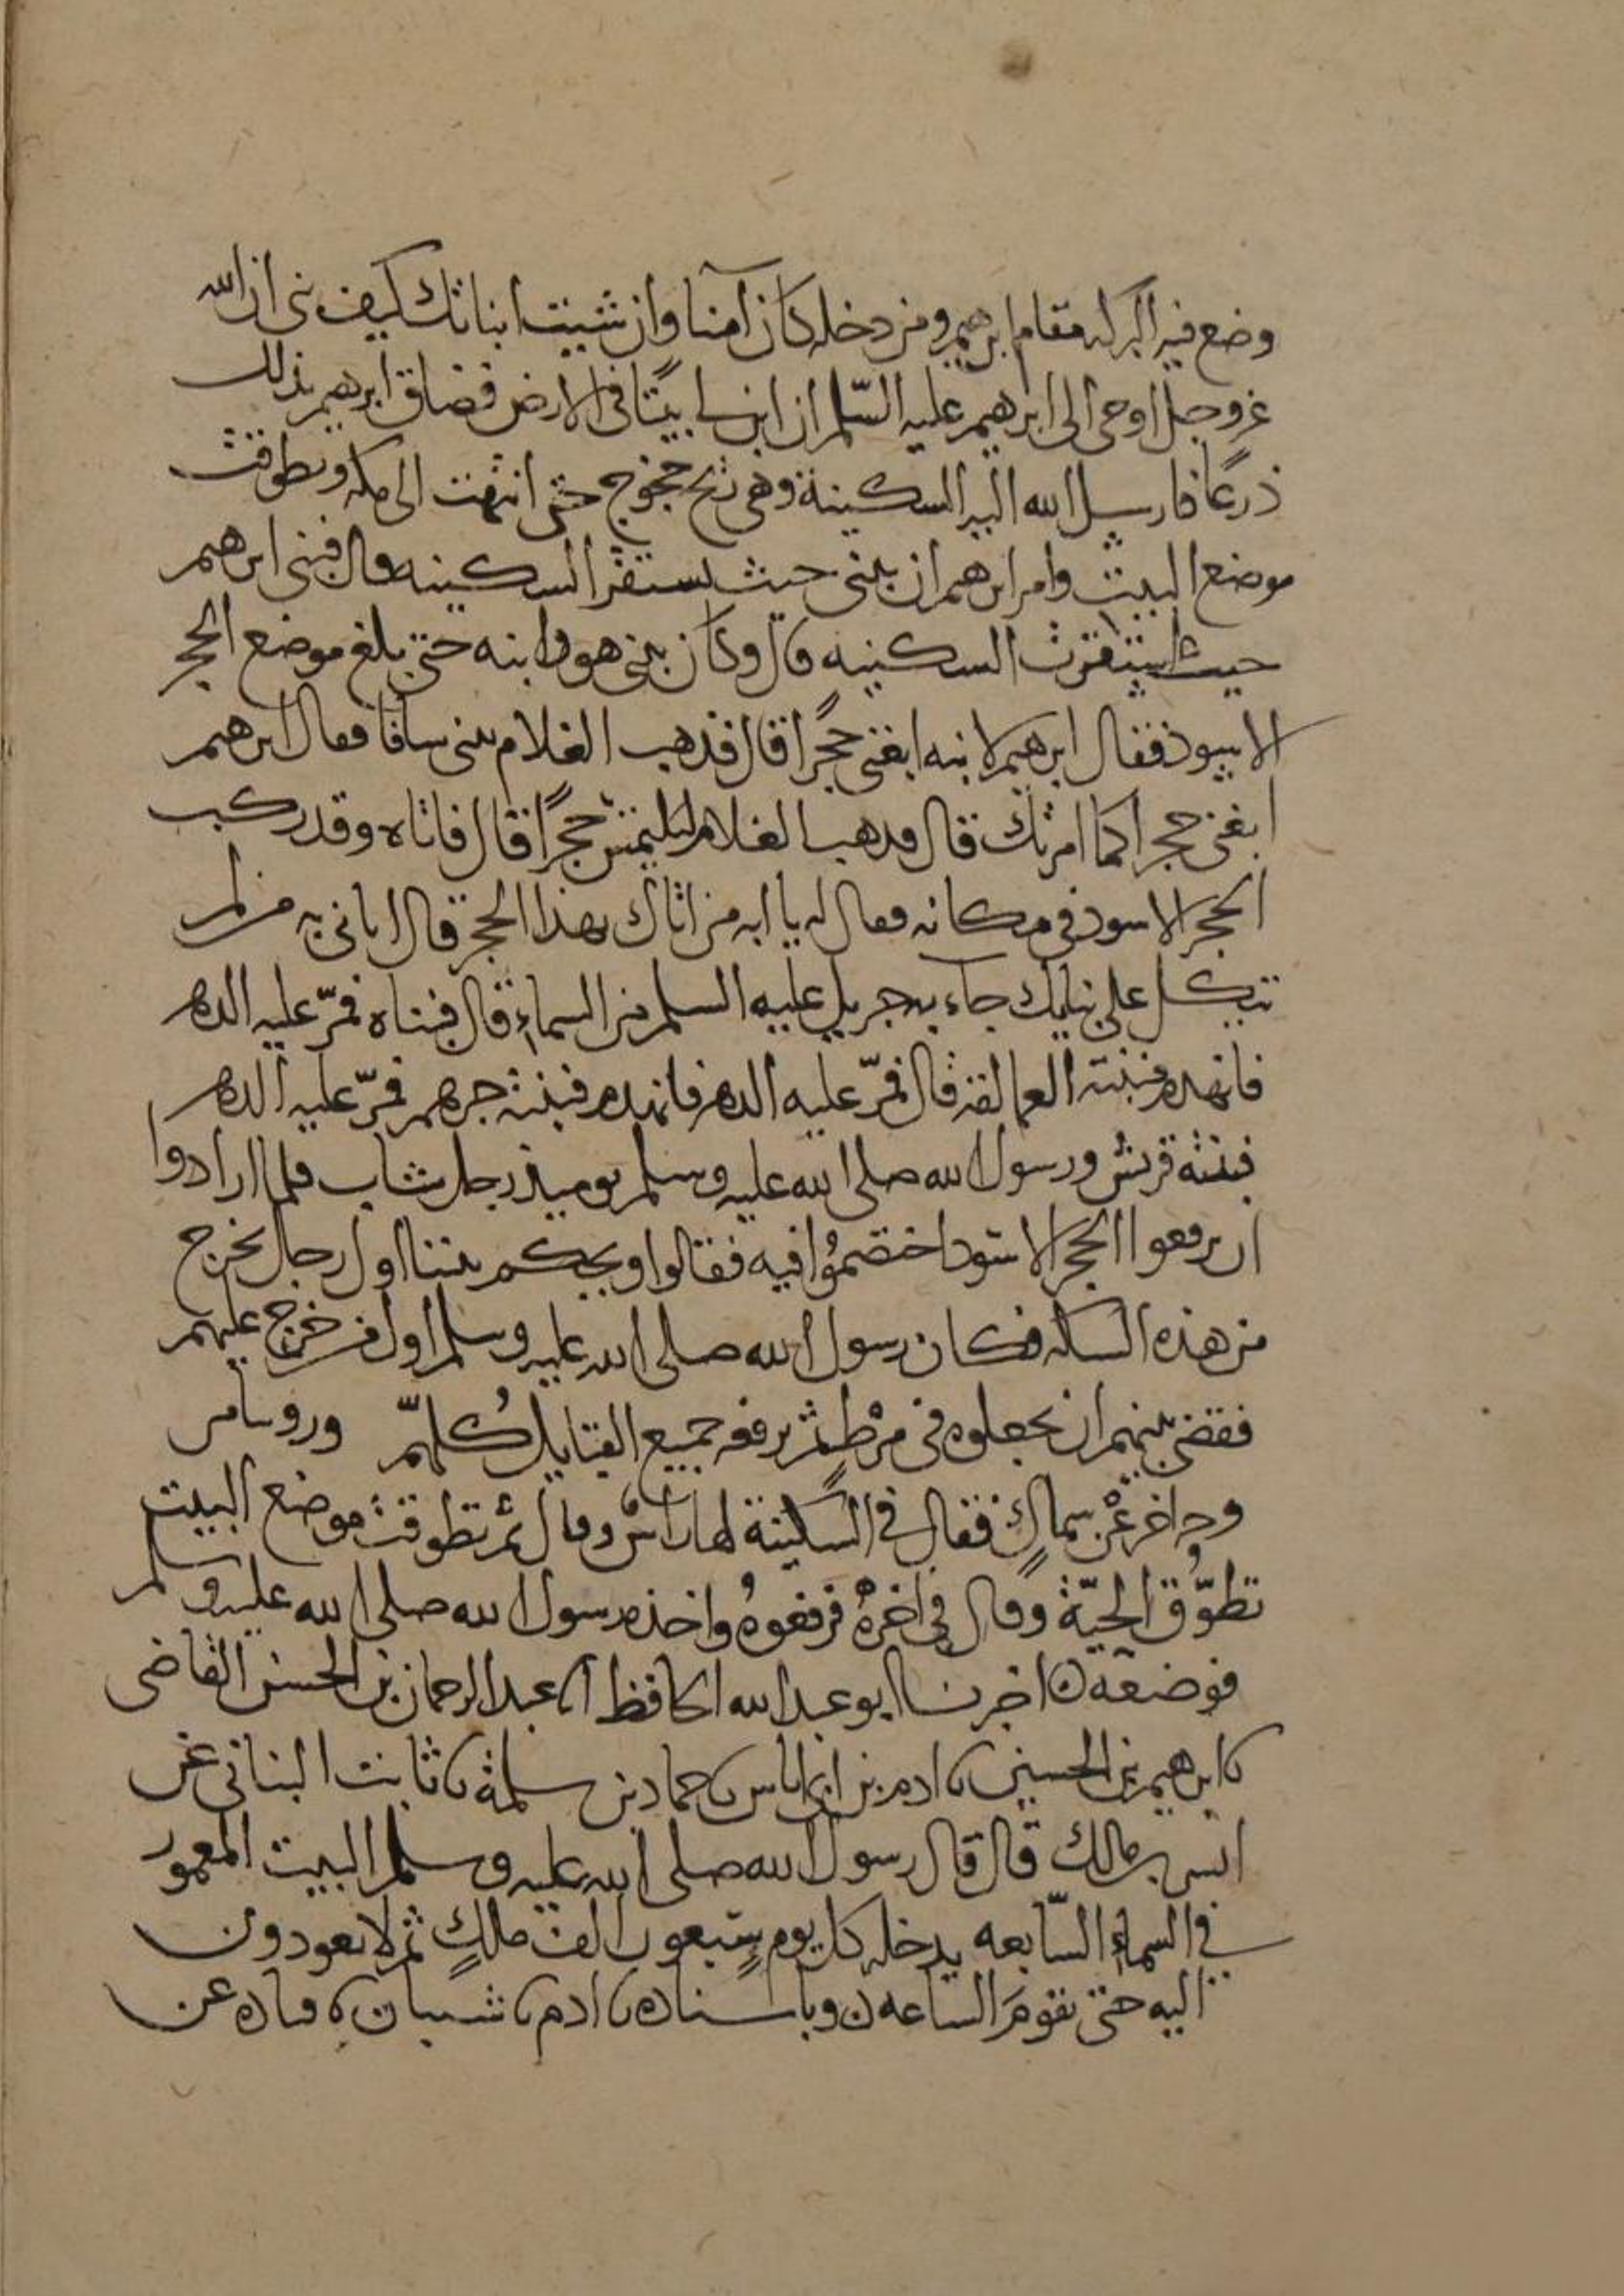 وضع فيه البركة مقام ابرهيم ومن دخله كان آمنا وان شيت انباتك كيف بني ان الله
عز وجل اوحى الى ابرهيم عليه السلم ان ابن لي بيتا في الارض فضاق ابرهيم بذلك
ذرعا فارسل الله اليه السكينة وهي ريح خجوج حتى انتهت الى مكه وتطوقت
موضع البيت وامر ابرهيم ان يبني حيث تستقر السكينه قال فبنى ابرهيم
حيث استقرت السكينه قال وكان يبني هو وابنه حتى بلغ موضع الحجر
الاسود فقال ابرهيم لابنه ابغني حجرا قال فذهب الغلام يبني سافا فقال ابرهيم
ابغني حجرا كما امرتك قال فذهب الغلام ليلتمس حجرا قال فاتاه وقد ركب
الحجر الاسود في مكانه فقال له يا ابه من اتاك بهذا الحجر قال اتاني به من لم
يتكل على بنايك جاء به جبريل عليه السلم من السماء قال فبناه فمر عليه الدهر
فانهدم فبنته العمالقة قال فمر عليه الدهر فانهدم فبنته جرهم فمر عليه الدهر
فبنته قريش ورسول الله صلى الله عليه وسلم يوميذ رجل شاب فلما ارادوا
ان يرفعوا الحجر الاسود اختصموا فيه فقالوا ويحكم بيننا اول رجل يخرج
من هذه السكه فكان رسول الله صلى الله عليه وسلم اول من خرج عليهم
فقضى بينهم ان يجعلوه في مرط ثم يرفعه جميع القبايل كلهم ورويناه من
وجه اخر عن سماك فقال في السكينة لها راس وقال ثم تطوقت موضع البيت
تطوق الحية وقال في اخره فرفعوه واخذه رسول الله صلى الله عليه وسلم
فوضعه ٥ اخبرنا ابو عبد الله الحافظ انا عبد الرحمان بن الحسن القاضي
نا ابرهيم بن الحسين نا ادم بن ابي اياس نا حماد بن سلمة نا ثابت البناني عن
انس بن مالك قال قال رسول الله صلى الله عليه وسلم البيت المعمور
في السماء السابعه يدخله كل يوم سبعون الف ملك ثم لا يعودون
اليه حتى تقوم الساعه ٥ وباسناده نا ادم نا شيبان نا قتاده عن